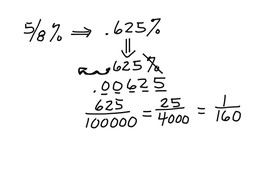 5/8% ⇒ .625%
⇓
.625%
.00625
625/100000 = 25/4000 = 1/160